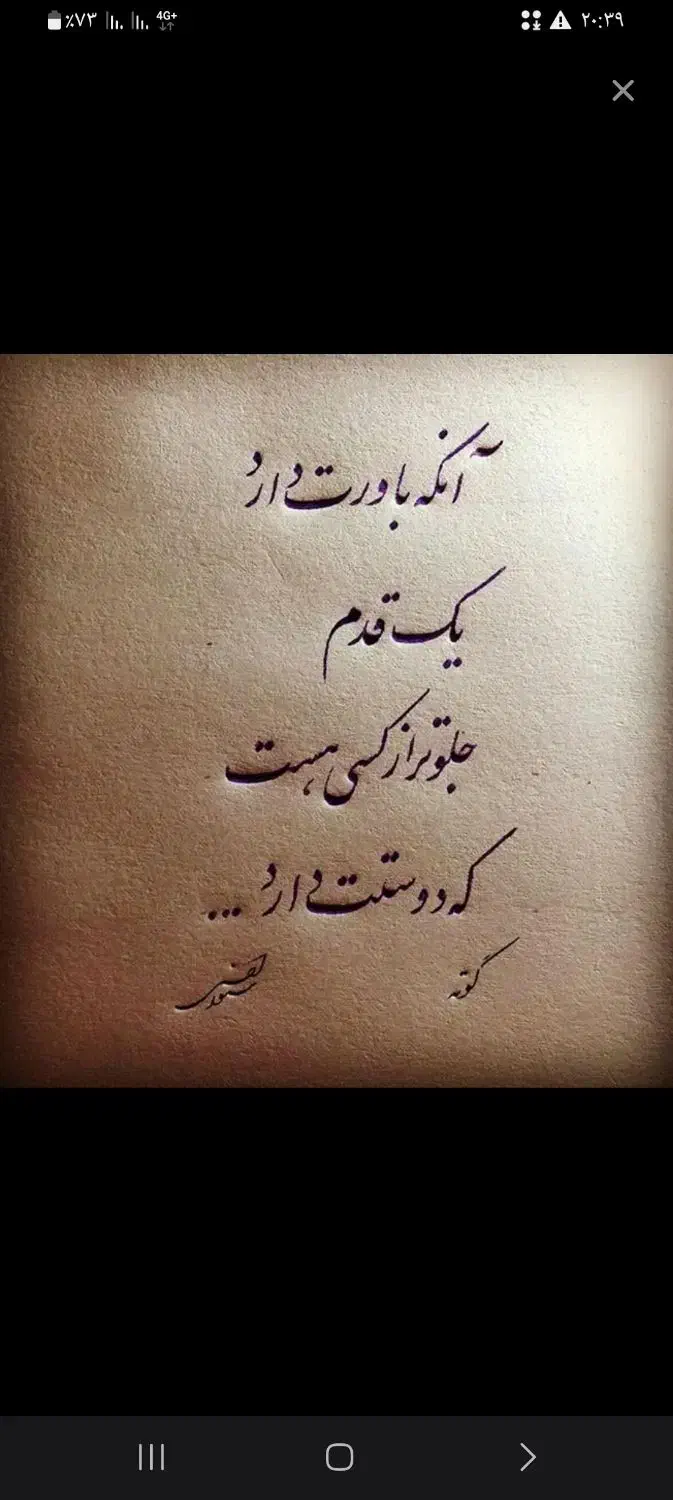 ٪۷۳ 4G+ ۲۰:۳۹
آنکه باورت دارد
یک قدم
جلوتر از کسی هست
که دوستت دارد ...
گوته